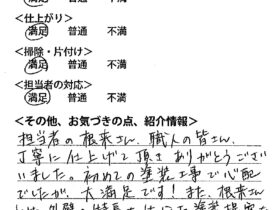 <仕上がり>
満足 普通 不満
<掃除・片付け>
満足 普通 不満
<担当者の対応>
満足 普通 不満
<その他、お気づきの点、紹介情報>
担当者の根来さん、職人の皆さん、
丁寧に仕上げて頂き ありがとうござい
ました。初めての塗装工事で心配
でしたが、大満足です！また、根来さん